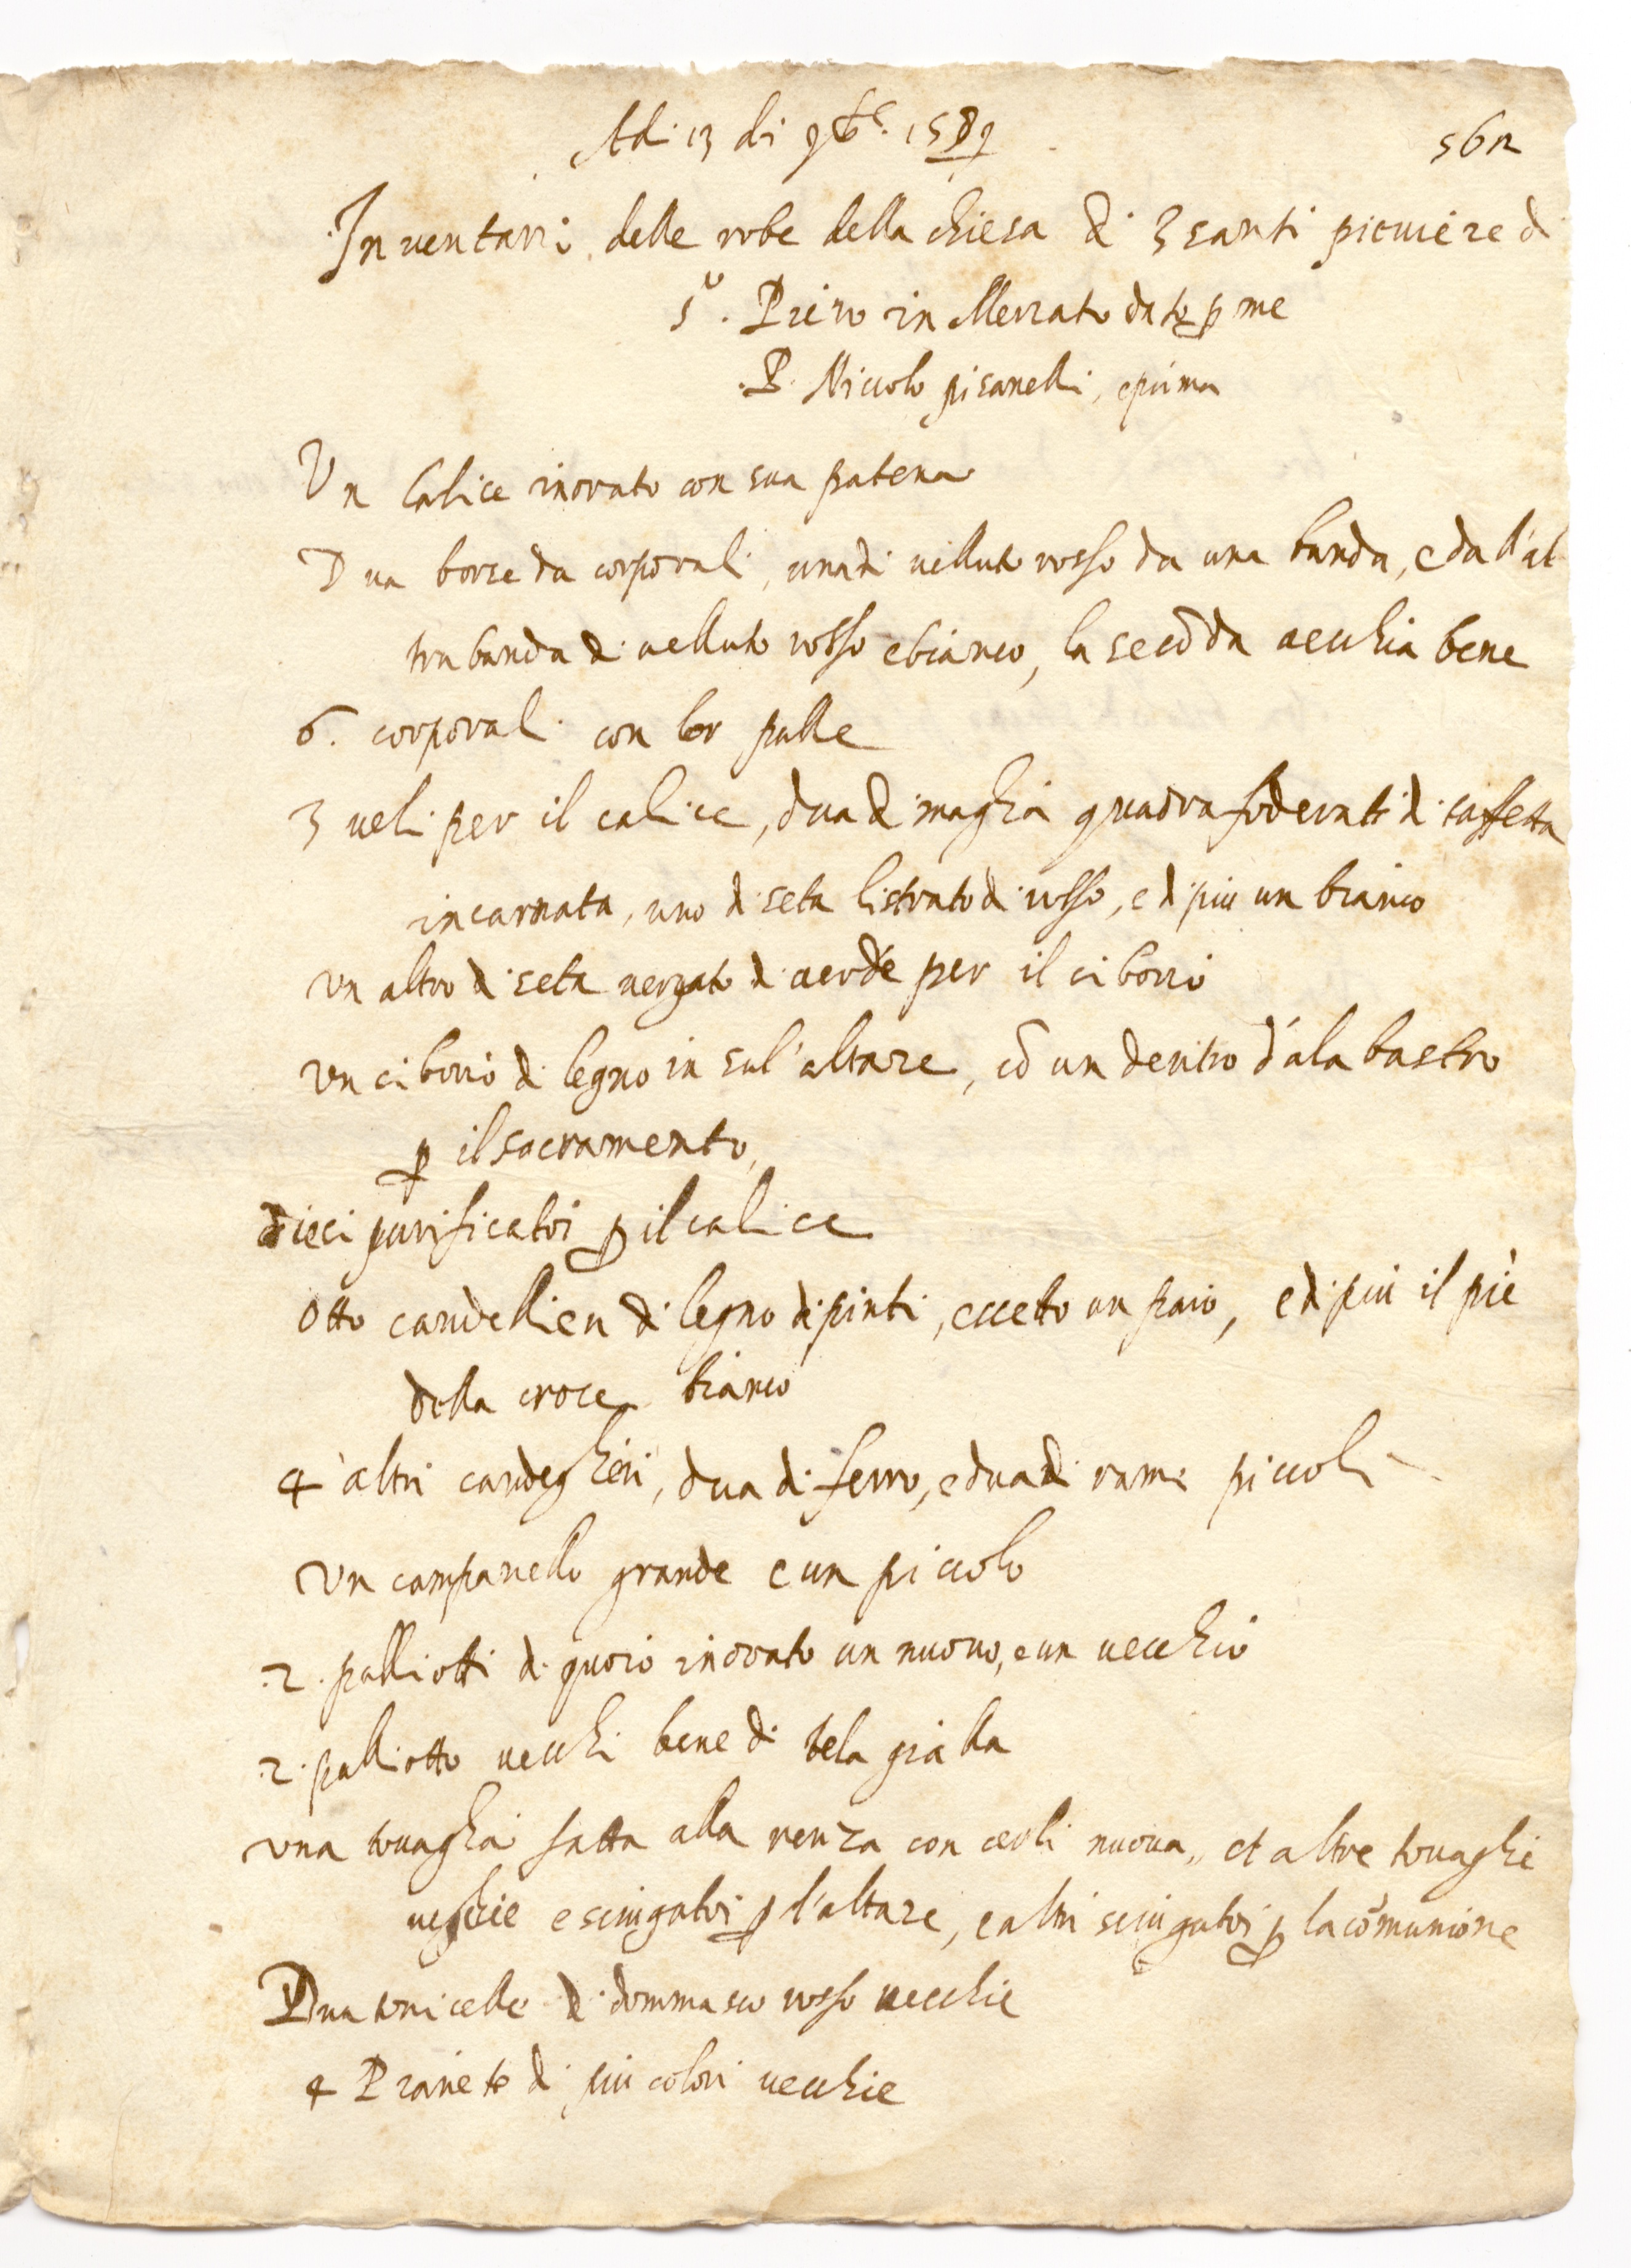 Adi 13 di 9bre. 1589
56r
Inventario delle robe della chiesa di 3 santi pieviere di
Sto. Piero in Mercato dato p me
P. Niccolo pisanelli, e prima
Un Calice inorato con sua patena
Dua borse da corporali, una di velluto rosso da una banda, e da l'al
tra banda di velluto rosso e bianco, la secōda vecchia bene
6. corporali con lor palle
3 veli per il calice, dua di maglia quadra foderati di taffetta
incarnata, uno di seta listrato di rosso, e di piu un bianco
un altro di seta vergato di verde per il ciborio
un ciborio di legno in sul'altare, cō un dentro d'alabastro
p il sacramento,
dieci purificatoi p il calice
otto candellieri di legno dipinti, eccetto un paio, e di piu il piè
della croce bianco
4 altri candeglieri, dua di ferro, e dua di rame piccoli
un campanello grande e un piccolo
.2. palliotti di quoio inorato un nuovo, e un vecchio
.2. palliotto vecchi bene di tela gialla
una tovaglia fatta alla renza con cerli nuova, et altre tovaglie
veghie e sciugatoi p l'altare, e altri sciugatoi p la cōmunione
Dua tonicelle di dommasco rosso vecchie
4 Pianete di piu colori vecchie